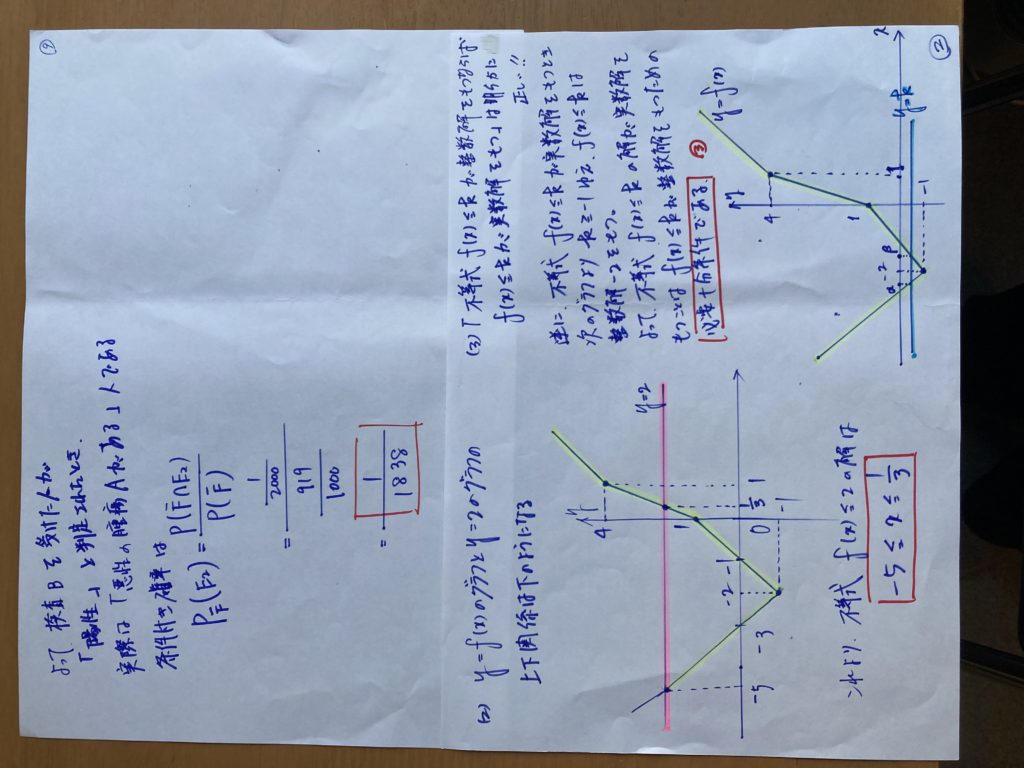 ①
よって 検査Bを受けた人が
「陽性」と判定されたとき.
実際は「悪性の腫瘍Aがある」人である
条件付き確率は
P_F̄(E₂) = P(F̄∩E₂) / P(F̄)
= (1/2000) / (919/1000)
= 1/1838
②
(2) y=f(x)のグラフとy=2のグラフの
上下関係は下のようになる
y
4
y=2
1
-5 -3 -2 -1 0 1/3 1
-1
これより、不等式 f(x)≦2の解は
-5≦x≦1/3
(3)「不等式 f(x)≦kが整数解をもつならば
f(x)≦kが実数解をもつ」は明らかに
正しい!!
逆に、不等式 f(x)≦kが実数解をもつとき
次のグラフより k≧-1ゆえ、f(x)≦kは
整数解-2をもつ。
よって、不等式 f(x)≦kの解が実数解を
もつことは f(x)≦kが整数解をもつための
必要十分条件である ③
y
y=f(x)
4
1
α -2 β 1 x
y=k
-1